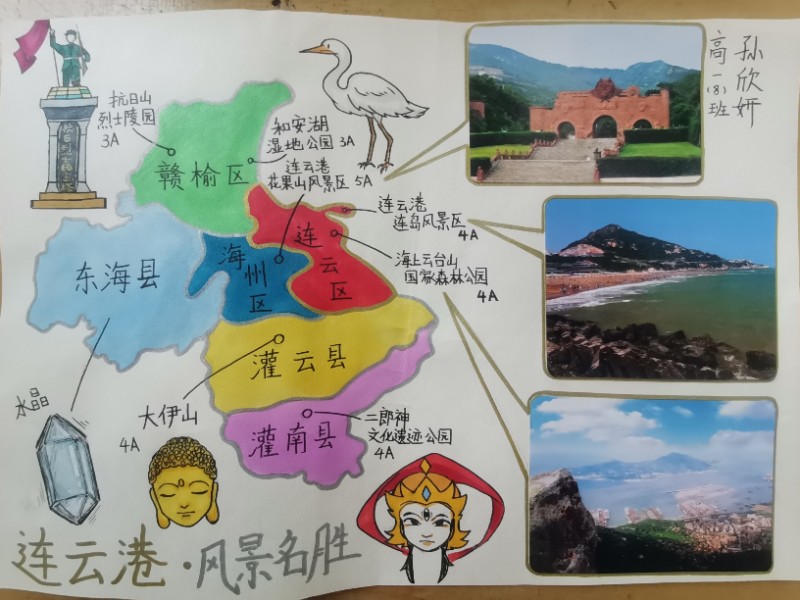 孙欣妍
高一(8)班
抗日山
烈士陵园
3A
和安湖
湿地公园 3A
连云港
花果山风景区 5A
赣榆区
连云港
连岛风景区
4A
连云区
海上云台山
国家森林公园
4A
海州区
东海县
灌云县
水晶
大伊山
4A
灌南县
二郎神
文化遗迹公园
4A
连云港·风景名胜